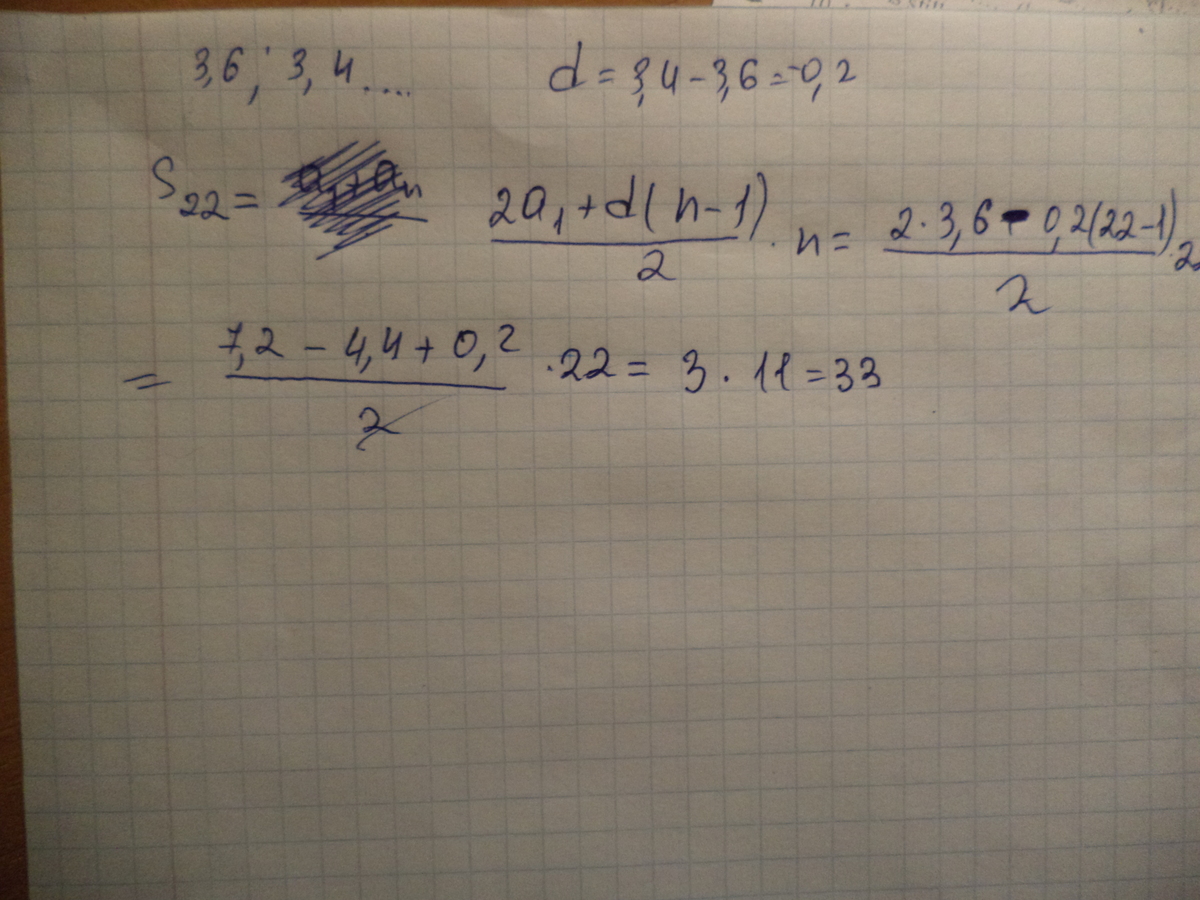 3,6; 3,4.... d = 3,4 - 3,6 = -0,2
S22 = (2a1 + d(n-1))/2 · n = (2·3,6 - 0,2(22-1))/2 · 22
= (7,2 - 4,4 + 0,2)/2 · 22 = 3 · 11 = 33